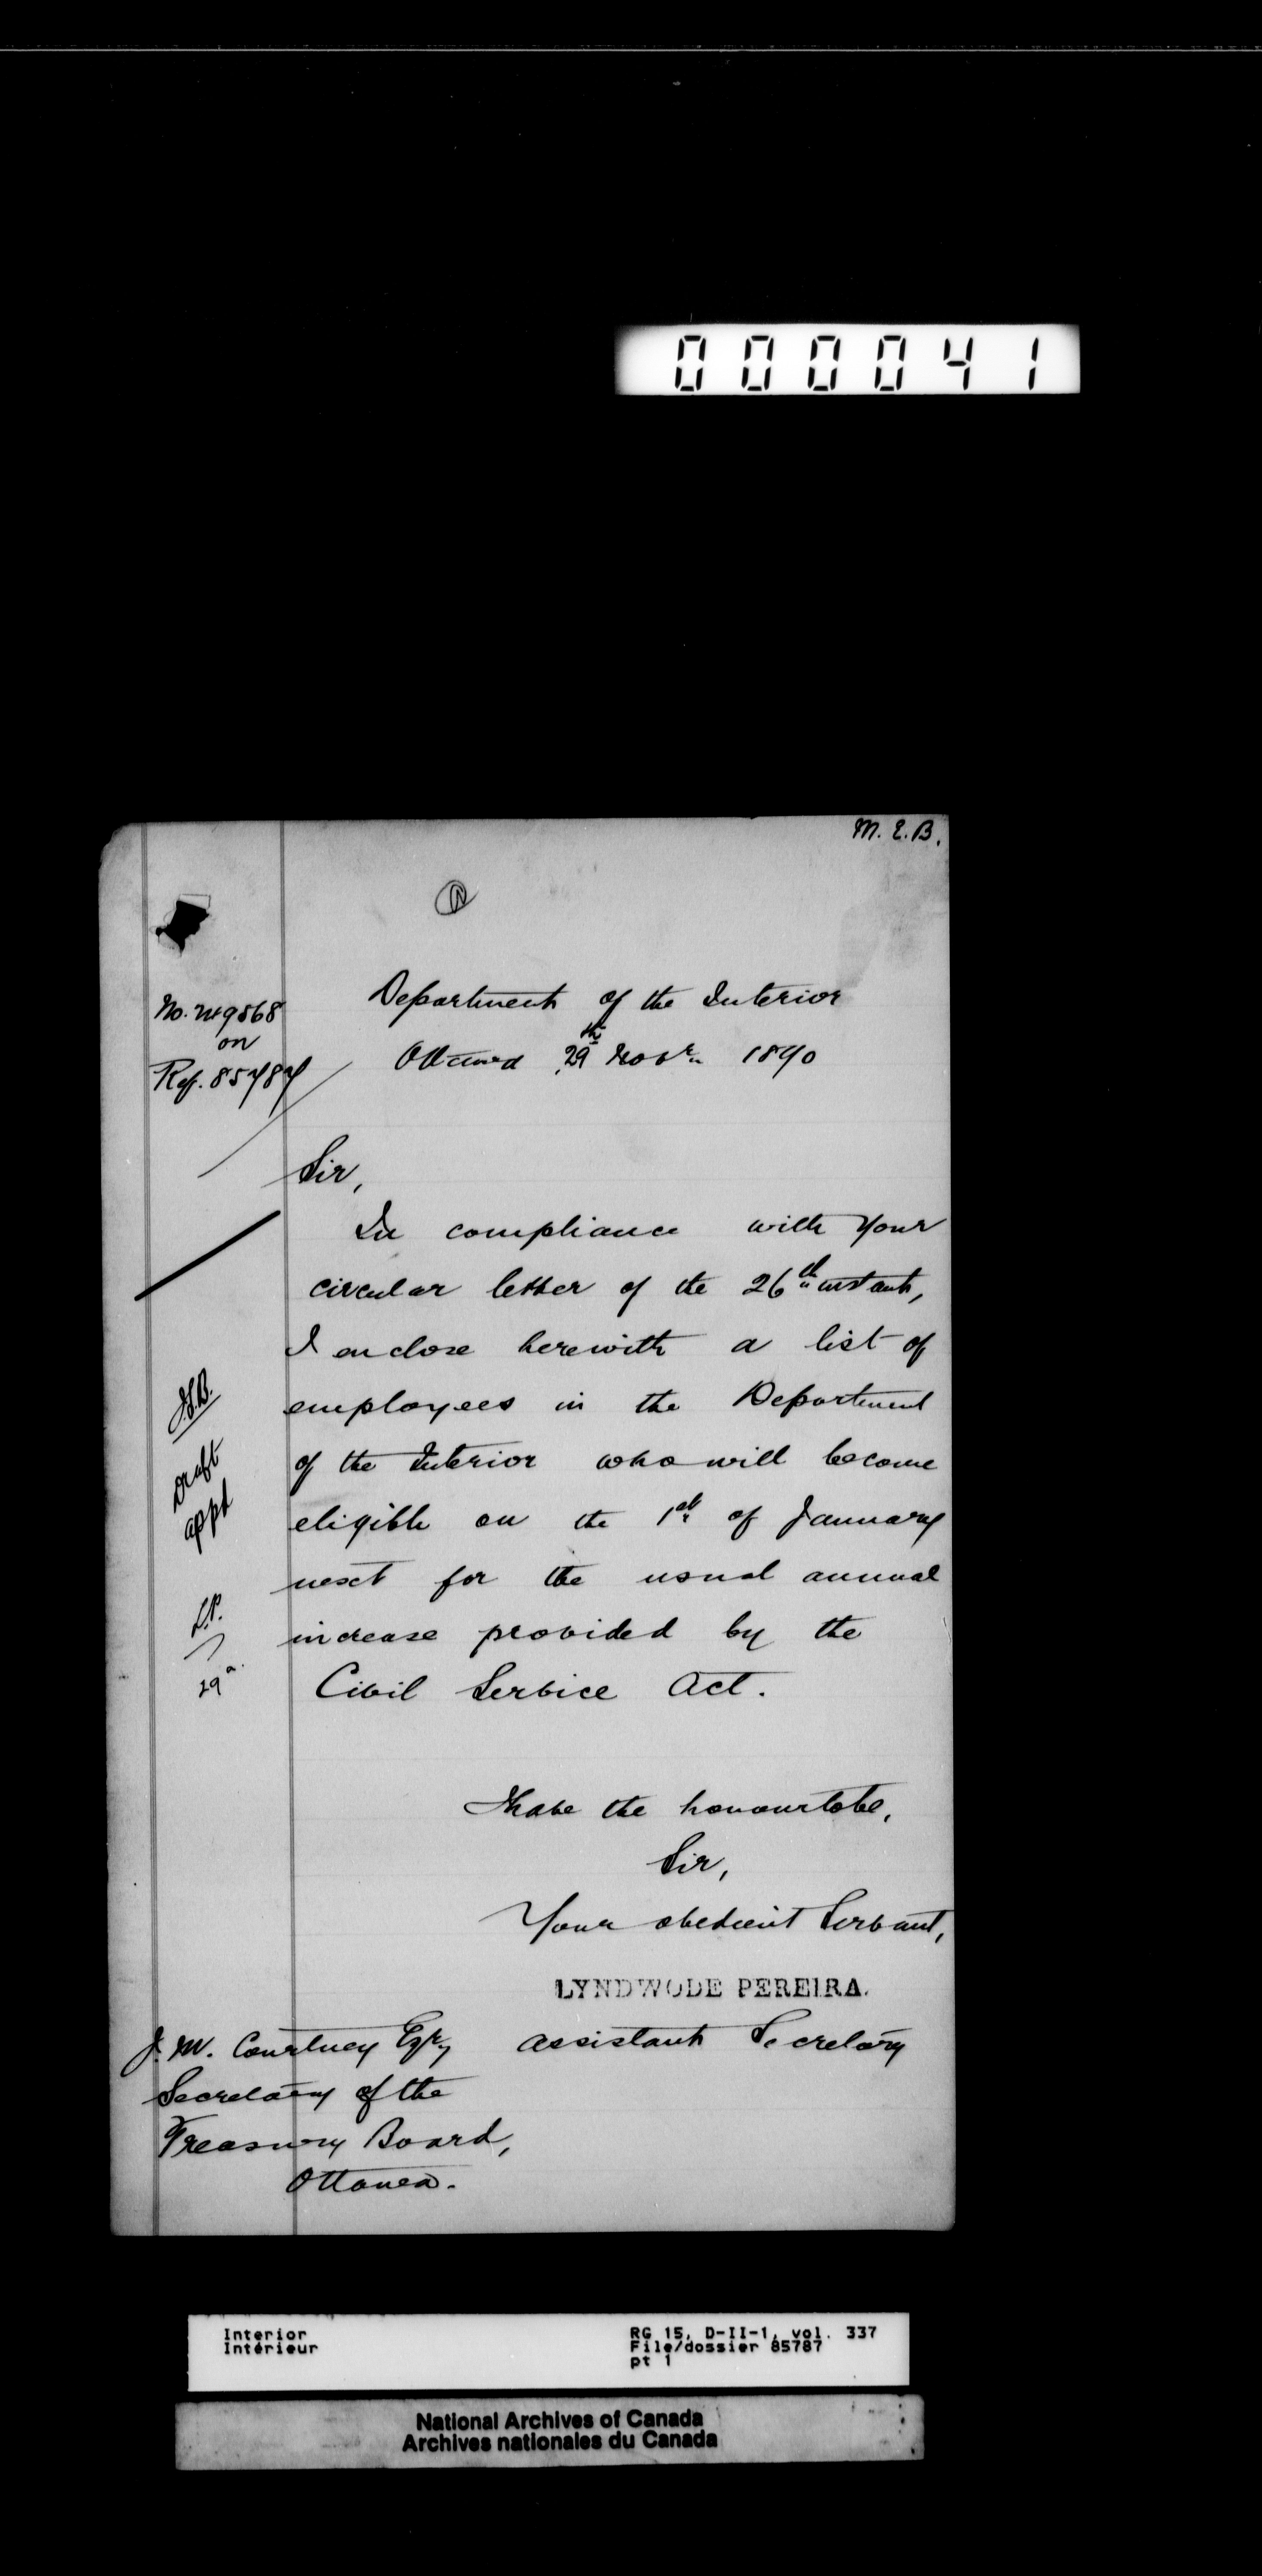 000041
M. E. B.
No. 249568
on
Ref. 85787
Department of the Interior
Ottawa 29th Novr. 1890
Sir,
In compliance with your
circular letter of the 26th instant,
I enclose herewith a list of
employees in the Department
of the Interior who will become
eligible on the 1st of January
next for the usual annual
increase provided by the
Civil Service Act.
Draft
appd
L.P.
29
I have the honour to be,
Sir,
Your obedient Servant,
LYNDWODE PEREIRA.
Assistant Secretary
J. M. Courtney Esqr,
Secretary of the
Treasury Board,
Ottawa.
Interior
Intérieur
RG 15, D-II-1, vol. 337
File/dossier 85787
pt 1
National Archives of Canada
Archives nationales du Canada